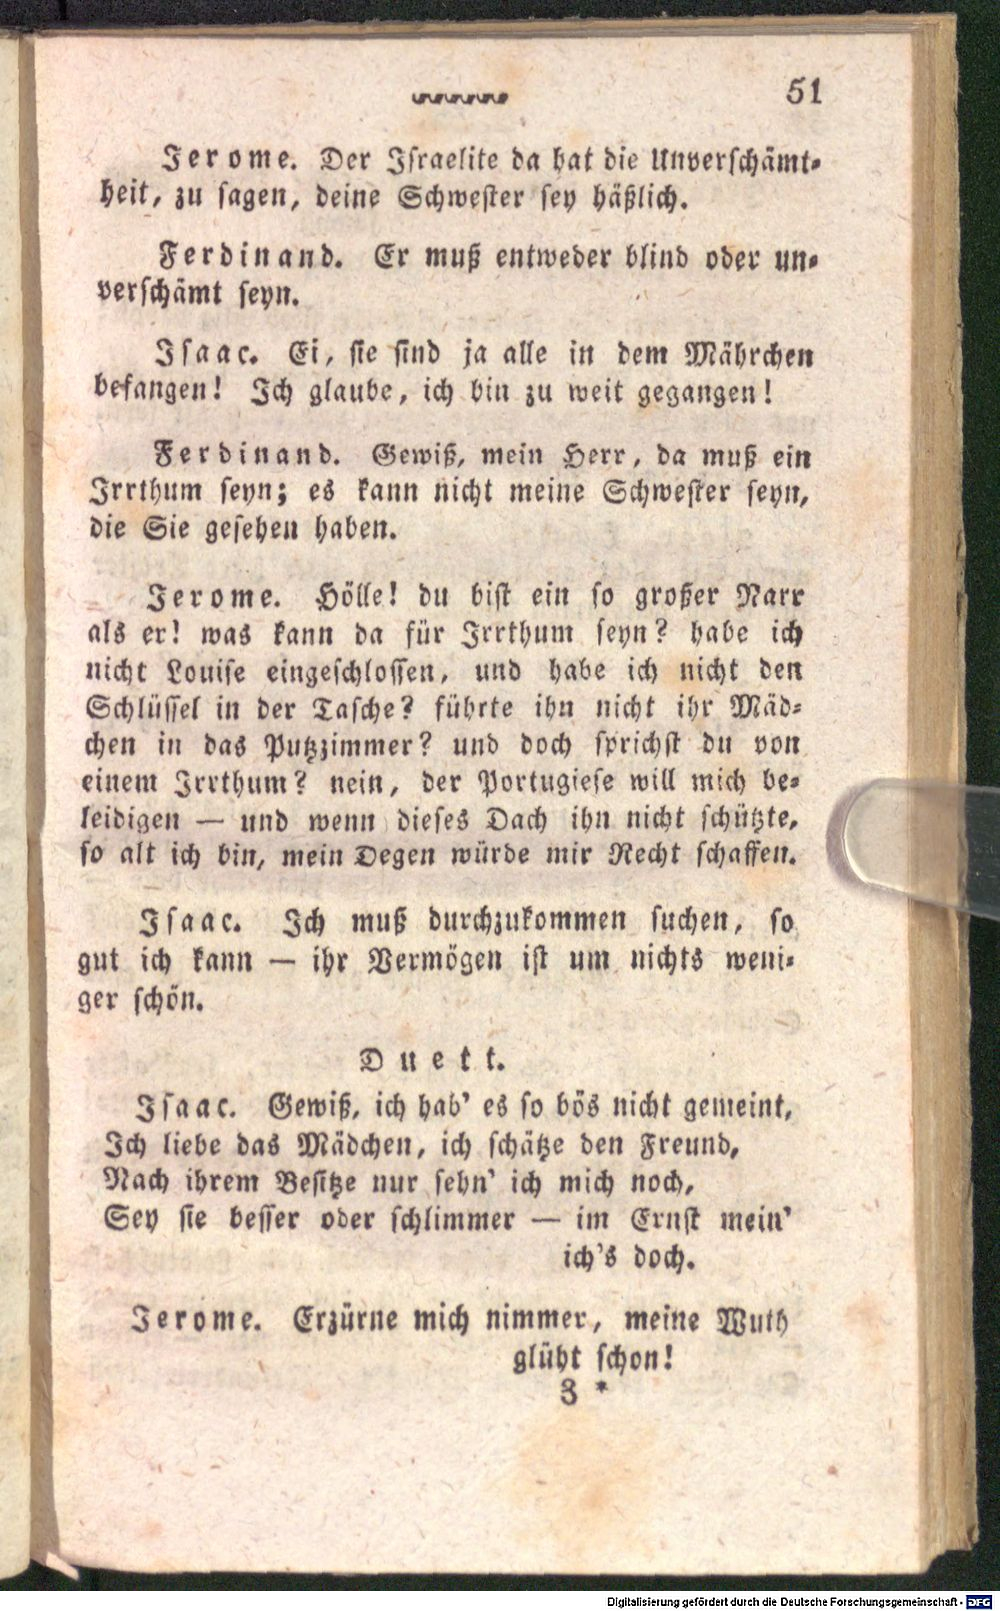 51
Jerome. Der Israelite da hat die Unverschämt-
heit, zu sagen, deine Schwester sey häßlich.
Ferdinand. Er muß entweder blind oder un-
verschämt seyn.
Isaac. Ei, sie sind ja alle in dem Mährchen
befangen! Ich glaube, ich bin zu weit gegangen!
Ferdinand. Gewiß, mein Herr, da muß ein
Irrthum seyn; es kann nicht meine Schwester seyn,
die Sie gesehen haben.
Jerome. Hölle! du bist ein so großer Narr
als er! was kann da für Irrthum seyn? habe ich
nicht Louise eingeschlossen, und habe ich nicht den
Schlüssel in der Tasche? führte ihn nicht ihr Mäd-
chen in das Putzzimmer? und doch sprichst du von
einem Irrthum? nein, der Portugiese will mich be-
leidigen — und wenn dieses Dach ihn nicht schützte,
so alt ich bin, mein Degen würde mir Recht schaffen.
Isaac. Ich muß durchzukommen suchen, so
gut ich kann — ihr Vermögen ist um nichts weni-
ger schön.
Duett.
Isaac. Gewiß, ich hab' es so bös nicht gemeint,
Ich liebe das Mädchen, ich schätze den Freund,
Nach ihrem Besitze nur sehn' ich mich noch,
Sey sie besser oder schlimmer — im Ernst mein'
ich's doch.
Jerome. Erzürne mich nimmer, meine Wuth
glüht schon!
3 *
Digitalisierung gefördert durch die Deutsche Forschungsgemeinschaft - DFG